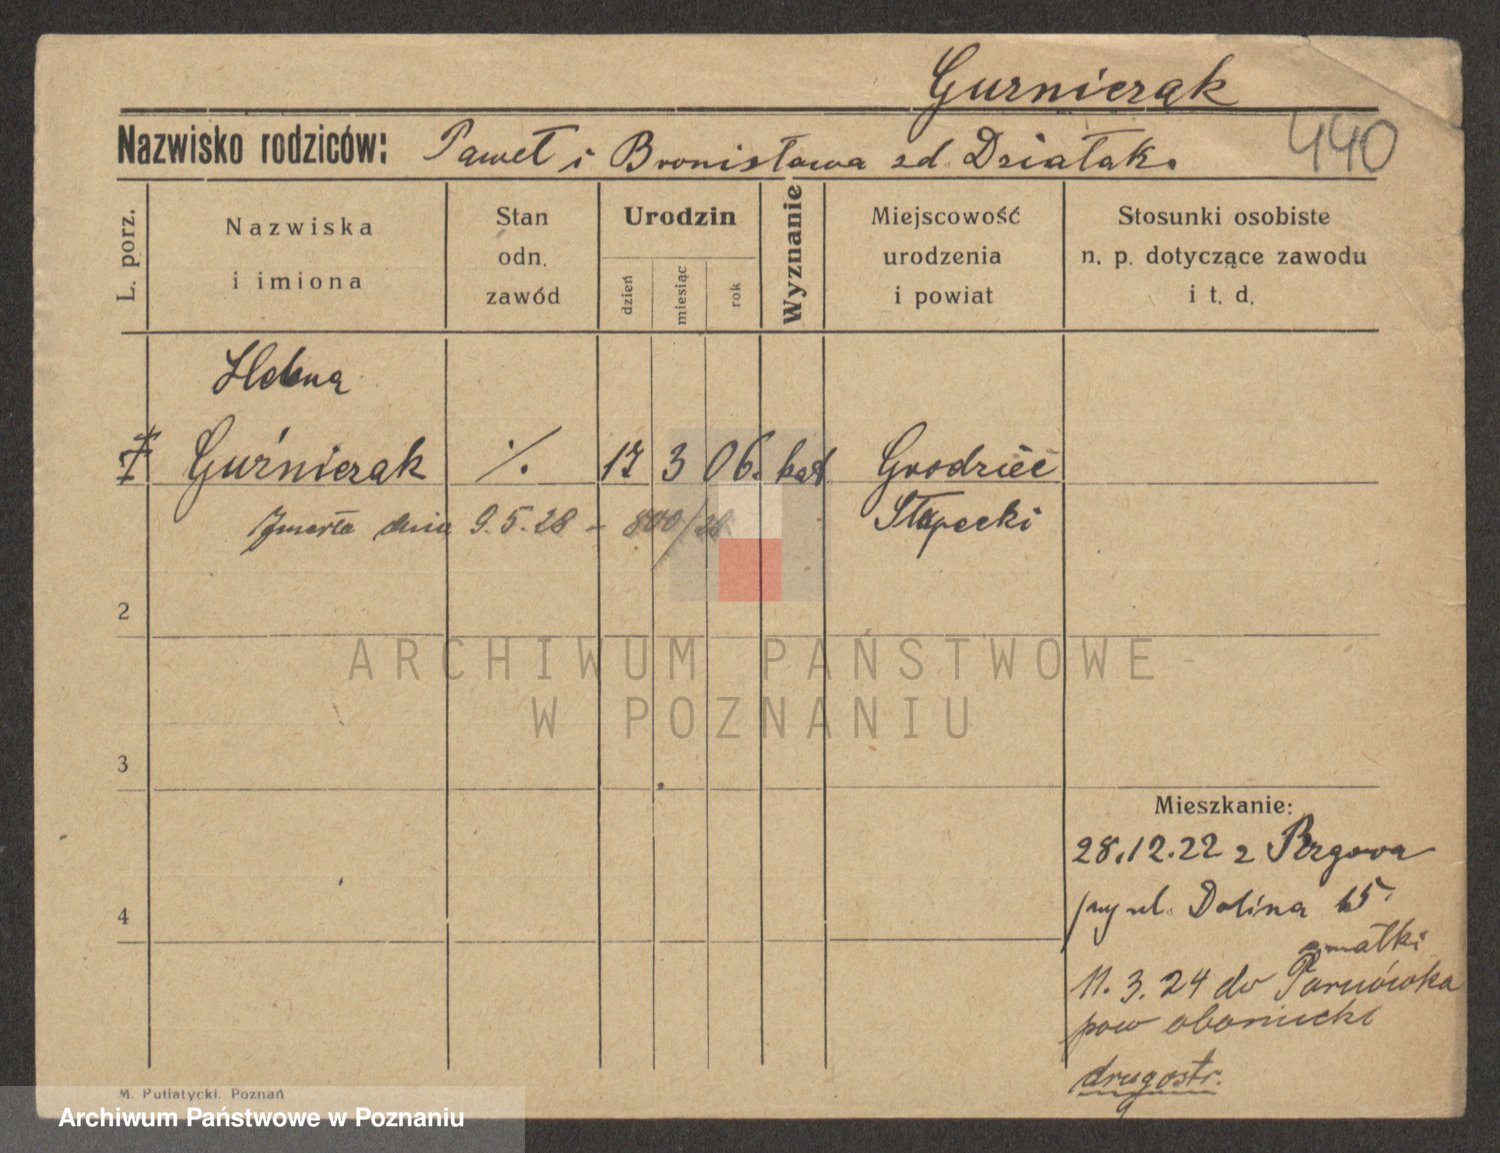 Gurnierak
440
Nazwisko rodziców: Paweł i Bronisława zd. Działak.
L. porz.
Nazwiska
i imiona
Stan
odn.
zawód
Urodzin
dzień
miesiąc
rok
Wyznanie
Miejscowość
urodzenia
i powiat
Stosunki osobiste
n. p. dotyczące zawodu
i t. d.
Helena
1 Guŕnierak ./. 17 3 06. kat Grodzieć
Zmarła dnia 9.5.28 - 800/28 Słupecki
2
ARCHIWUM PAŃSTWOWE
W POZNANIU
3
Mieszkanie:
28.12.22 z
ul. Dolina 15.
4
matki
11.3.24 do
pow obornicki
drugostr.
M. Putiatycki. Poznań
Archiwum Państwowe w Poznaniu